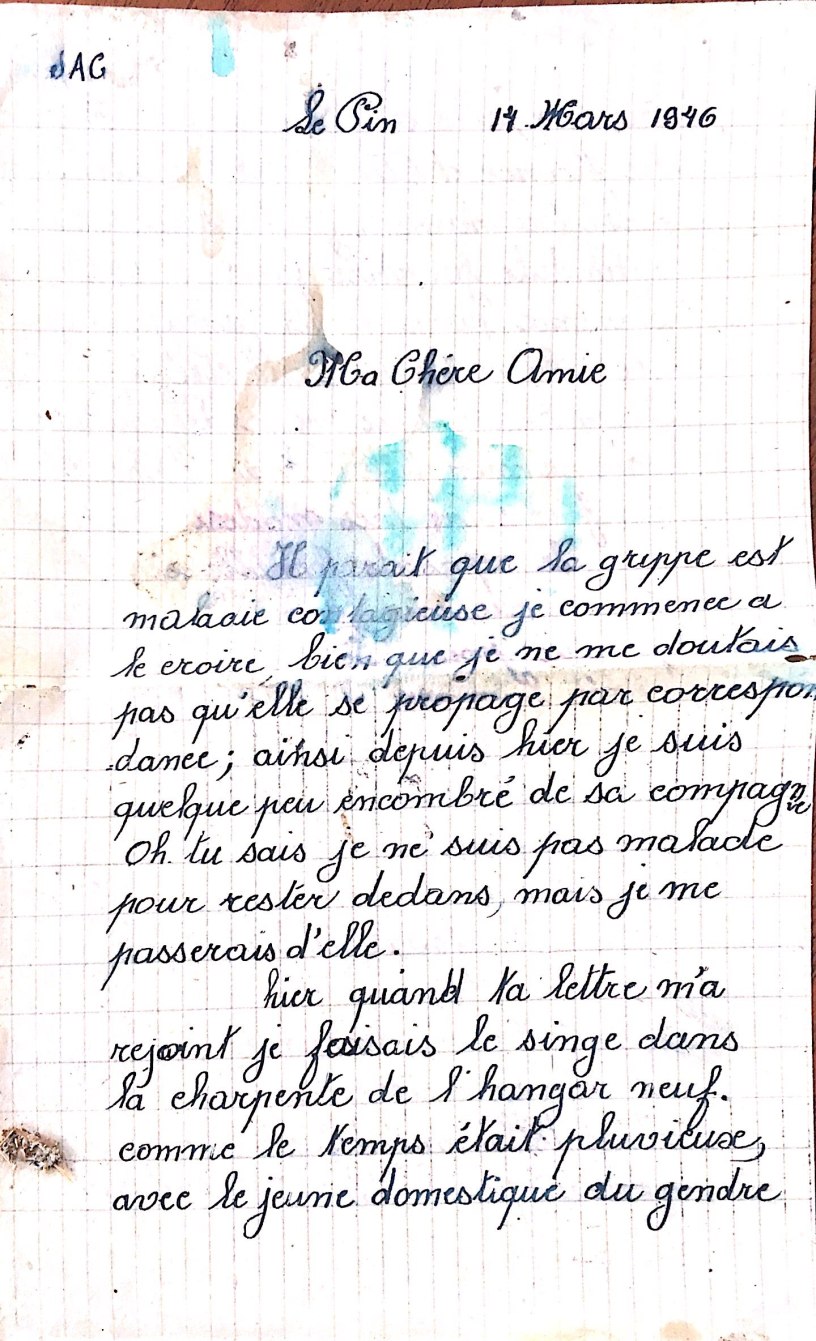 JAC
Le Pin 14 Mars 1946
Ma Chère Amie
Il parait que la grippe est
maladie contagieuse je commence a
le croire, bien que je ne me doutais
pas qu'elle se propage par correspon
dance; ainsi depuis hier je suis
quelque peu encombré de sa compagnie
Oh. tu sais je ne suis pas malade
pour rester dedans, mais je me
passerais d'elle.
hier quand ta lettre m'a
rejoint je faisais le singe dans
la charpente de l'hangar neuf.
comme le temps était pluvieux,
avec le jeune domestique du gendre